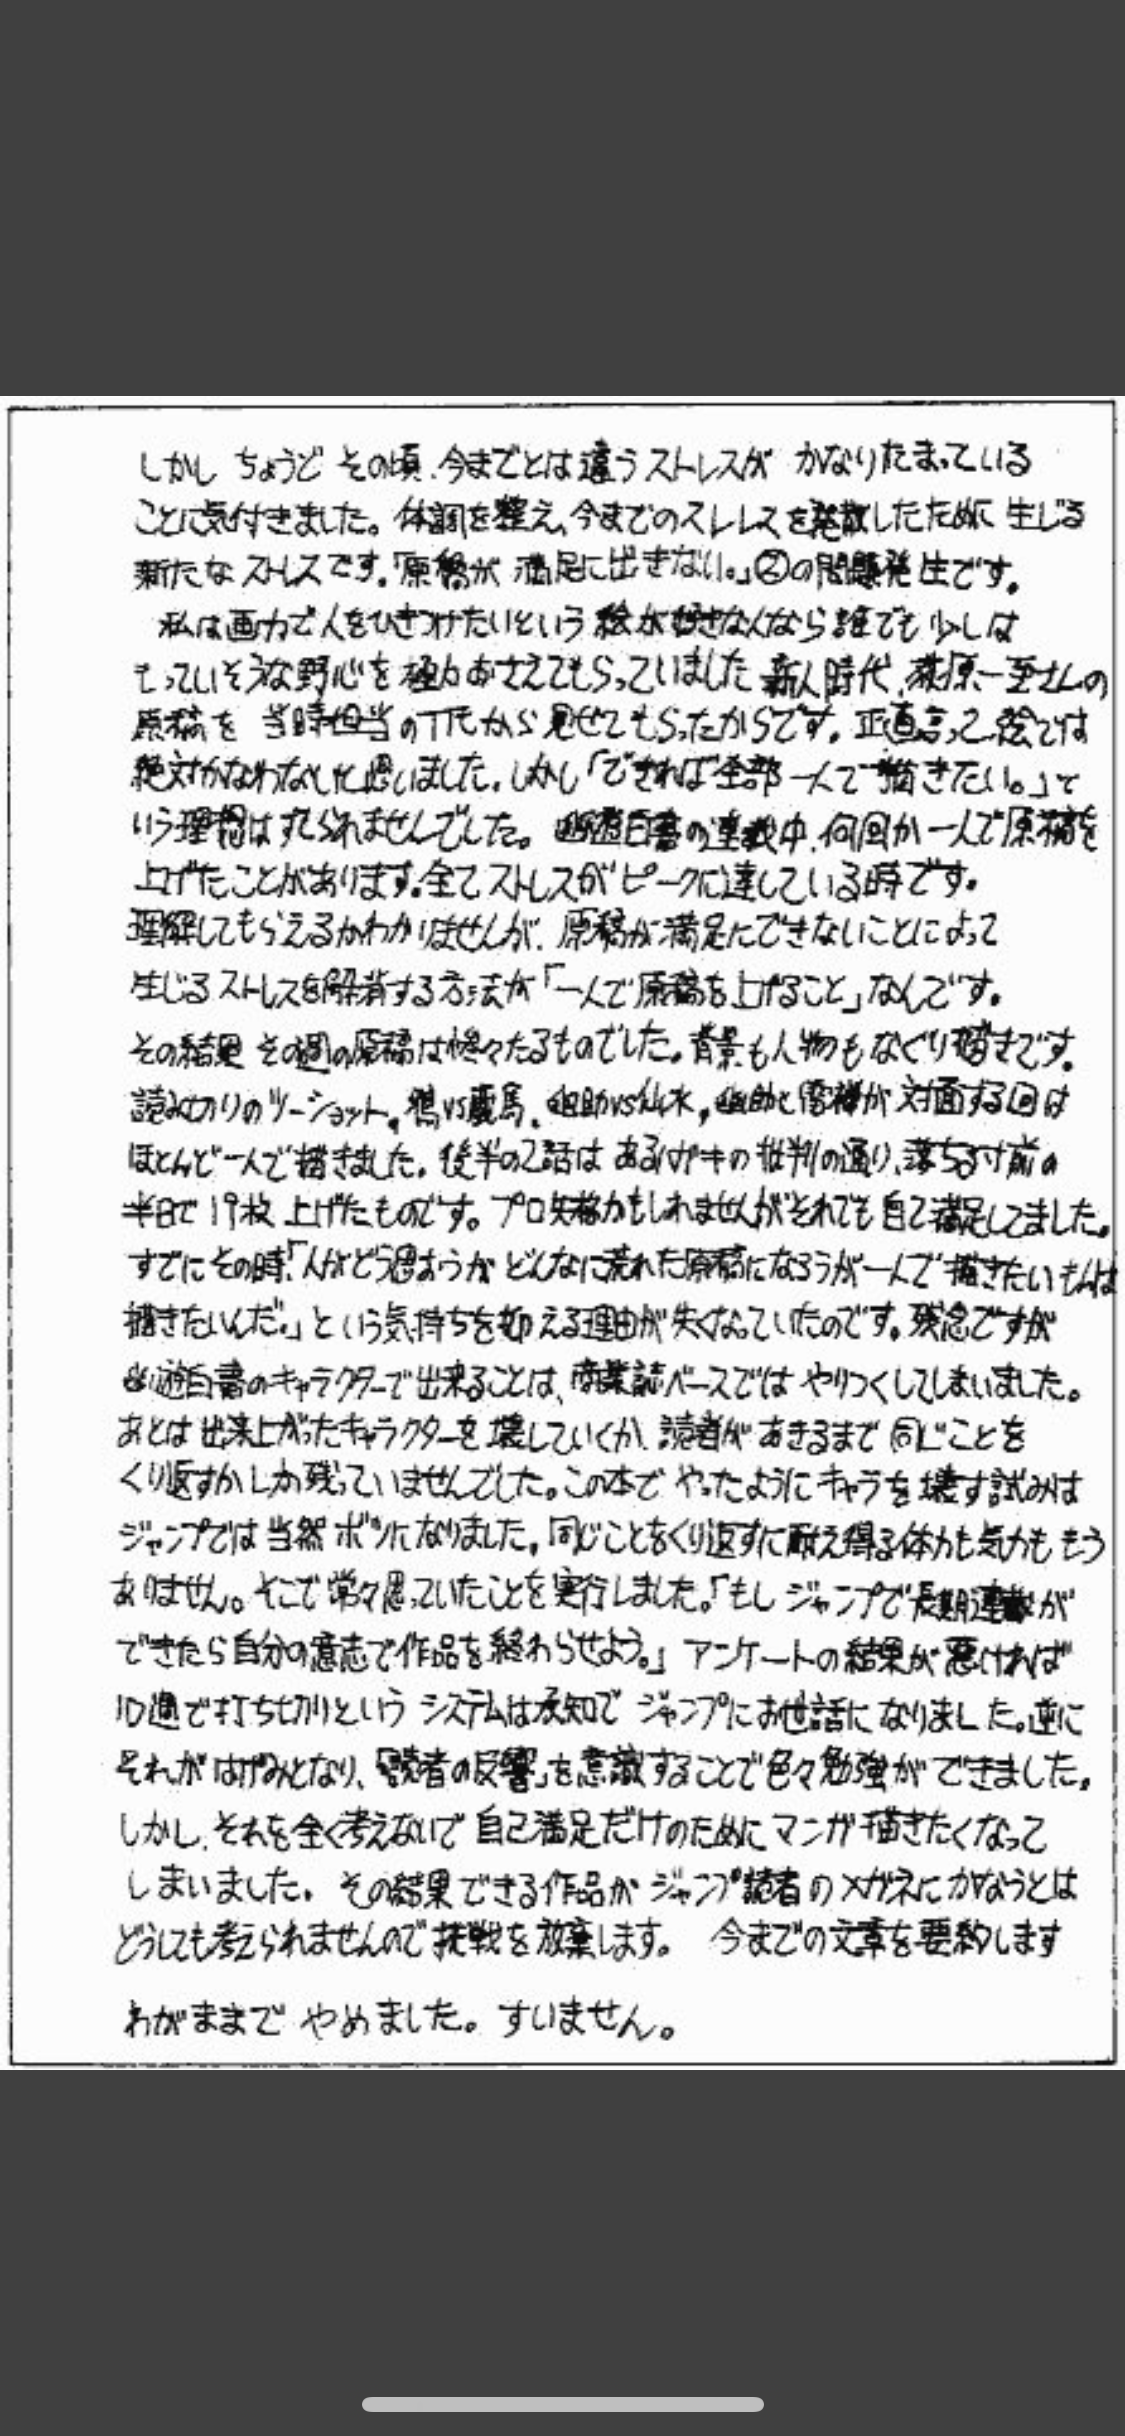 しかし ちょうど その頃、今までとは違うストレスが かなりたまっている
ことに気付きました。体調を整え、今までのスレレスを発散したために 生じる
新たな ストレスです。「原稿が 満足に出きない。」②の問題発生です。
私は画力で人をひきつけたいという 絵が好きな人なら誰でも 少しは
もっていそうな野心を 極力おさえてもらっていました 新人時代、萩原一至さんの
原稿を 当時担当のT氏から見せてもらったからです。正直言って、絵では
絶対かなわないと思いました。しかし「できれば全部 一人で描きたい。」と
いう理想はすてられませんでした。幽遊白書の連載中、何回か一人で原稿を
上げたことがあります。全てストレスがピークに達している時です。
理解してもらえるかわかりませんが、原稿が満足にできないことによって
生じるストレスを解消する方法が「一人で原稿を上げること」なんです。
その結果 その週の原稿は惨々たるものでした。背景も人物も なぐり描きです。
読み切りのツーショット。鴉vs蔵馬、幽助vs仙水，幽助と雷禅が 対面する回は
ほとんど一人で描きました。後半の2話は あるハガキの批判の通り、落ちる寸前の
半日で19枚 上げたものです。プロ失格かもしれませんがそれでも自己満足してました。
すでにその時、「人がどう思おうが どんなに荒れた原稿になろうが一人で描きたいもんは
描きたいんだ。」という気持ちを抑える理由が失くなっていたのです。残念ですが
幽遊白書のキャラクターで出来ることは、商業誌ベースでは やりつくしてしまいました。
あとは出来上がったキャラクターを壊していくか、読者があきるまで同じことを
くり返すかしか残っていませんでした。この本で やったように キャラを壊す試みは
ジャンプでは 当然 ボツになりました。同じことをくり返すに耐え得る体力も気力も もう
ありません。そこで常々思っていたことを実行しました。「もし ジャンプで長期連載が
できたら自分の意志で作品を終わらせよう。」アンケートの結果が悪ければ
10週で打ち切りという システムは承知で ジャンプにお世話になりました。逆に
それがはげみとなり、「読者の反響」を意識することで色々勉強ができました。
しかし、それを全く考えないで 自己満足だけのためにマンガ描きたくなって
しまいました。その結果できる作品が ジャンプ読者のメガネにかなうとは
どうしても考えられませんので挑戦を放棄します。 今までの文章を要約します
わがままで やめました。すいません。